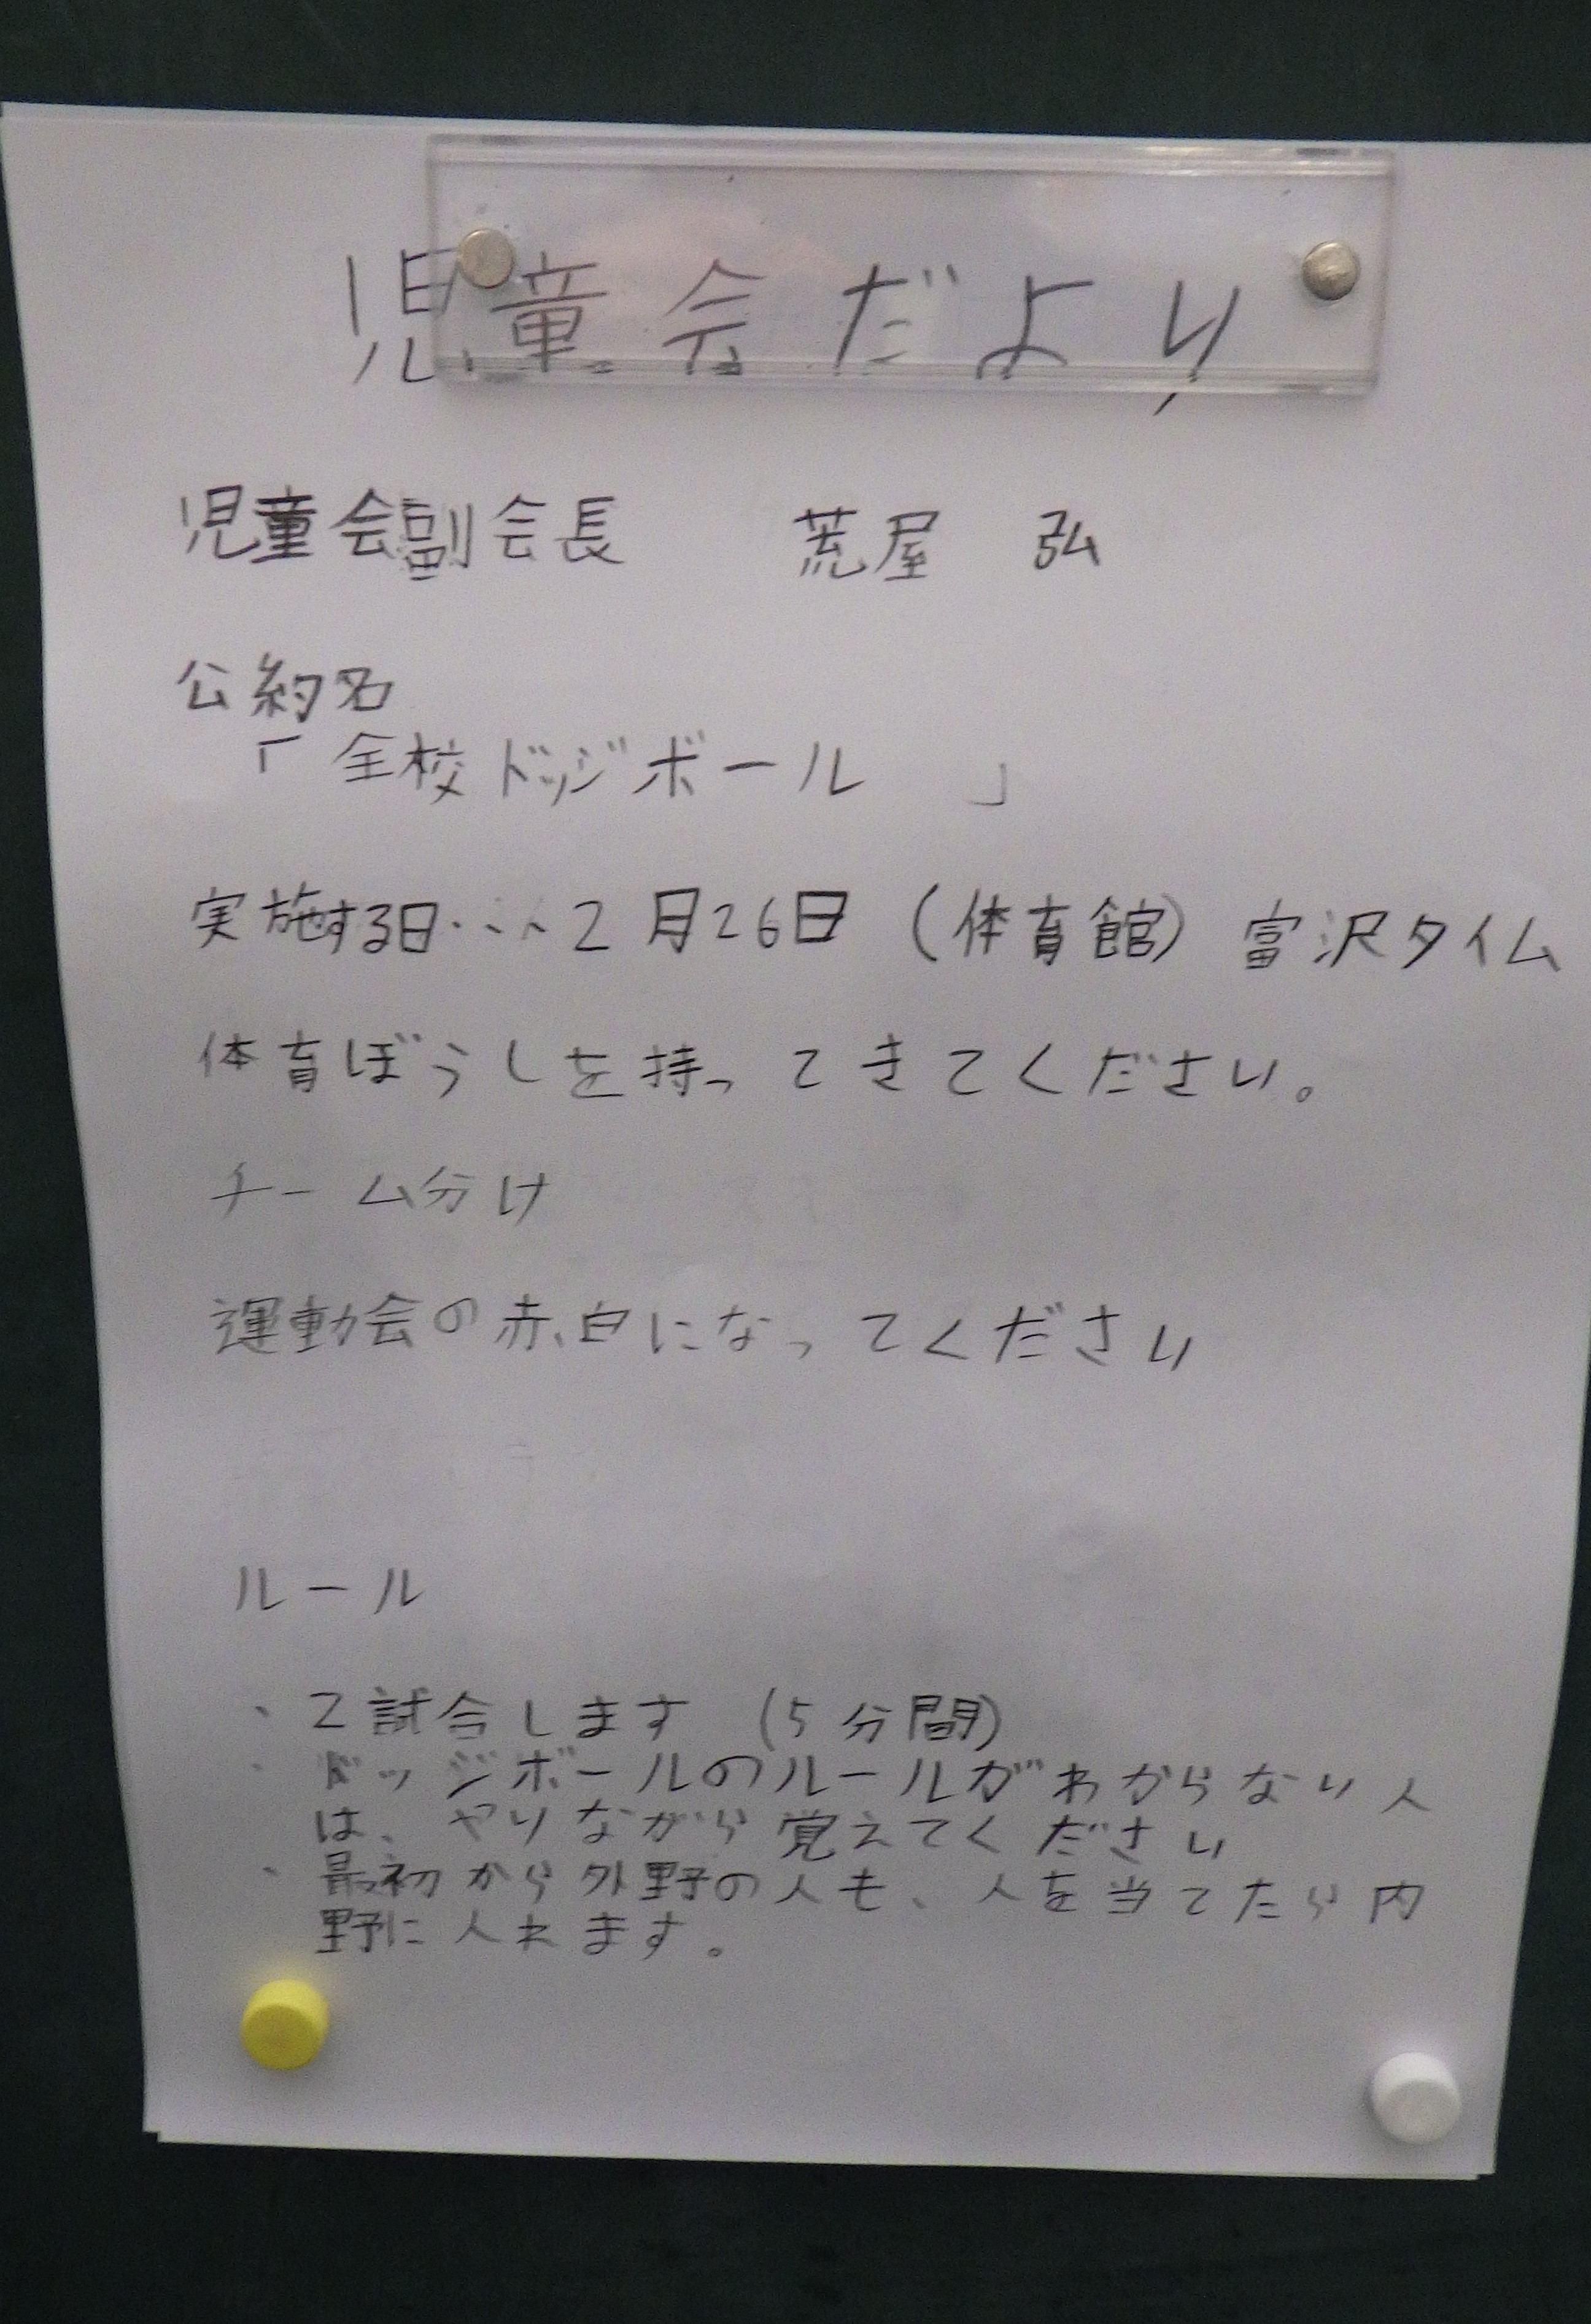 児童会だより
児童会副会長　荒屋　弘
公約名
「全校ドッジボール　」
実施する日・・・・2月26日（体育館）富沢タイム
体育ぼうしを持ってきてください。
チーム分け
運動会の赤白になってください
ルール
・2試合します（5分間）
・ドッジボールのルールがわからない人
は、やりながら覚えてください
・最初から外野の人も、人を当てたら内
野に入れます。